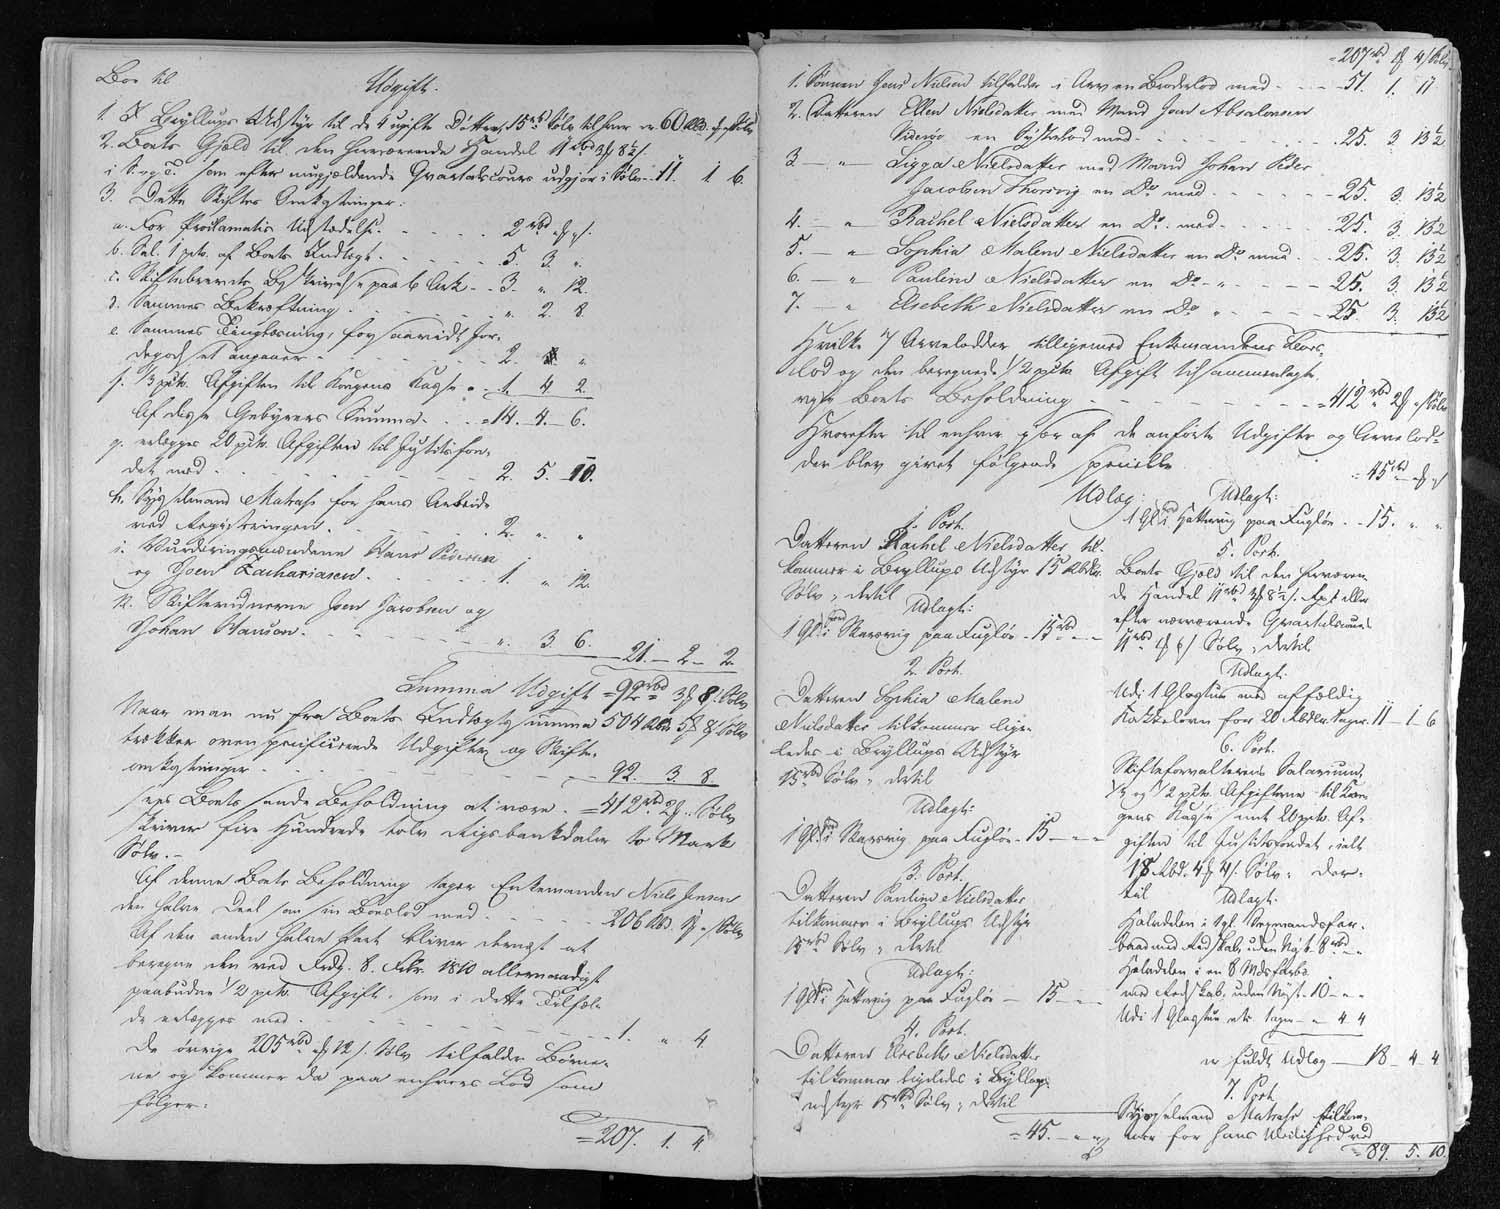 Boe til
Udgift.
1. I Bryllups Udstyr til de 4 ugifte Døttre, 15 rbd Sølv til hver er 60 Rbd. Sølv
2. Boets Gjæld til den herværende Handel 11 rbd 3 8½
i som efter nugjældende Qvartalscours udgjør i Sølv 11. 1. 6.
3. Dette Skiftes Omkostninger:
a. For Proclamatis Udstædelse 2 rbd
b. Sal. 1 pct. af Boets Indtægt 5. 3. "
c. Skiftebrevets Beskrivelse paa 6 Ark 3. " 12.
d. Sammes Bekræftning " 2. 8.
e. Sammes Tinglæsning, forsaavidt Jor-
degodset angaaer 2. "
f. 1/3 pct. Afgiften til Kongens Kasse 1. 4. 2.
Af disse Gebyrers Summa 14. 4. 6.
g. erlægges 20 pct. Afgiften til Justitsfon-
det med 2. 5. 10.
h. Sysselmand Matras for hans Arbeide
ved Registeringen 2. " "
i. Vurderingsmændene Hans Petersen
og Joen Zachariasen 1. " 12.
k. Skiftevidnerne Joen Jacobsen og
Johan Hansen " 3. 6. 21. 2. 2.
Summa Udgift 92 rbd 3 8 Sølv
Naar man nu fra Boets Indtægtssumma 504 Rbd 5 8 Sølv
trækker ovenspecificerede Udgifter og Skifte-
omkostninger 92. 3. 8.
sees Boets sande Beholdning at være 412 rbd 2 Sølv
skriver fire Hundrede tolv Rigsbankdaler to Mark
Sølv.
Af denne Boets Beholdning tager Enkemanden Niels Jensen
den halve Deel som sin Boeslod med 206 Rbd. 1 Sølv
Af den anden halve Part bliver dernæst at
beregne den ved Frdg. 8. Febr. 1810 allernaadigst
paabudne 1/2 pct. Afgift, som i dette Tilfæl-
de erlægges med 1. " 4
De øvrige 205 rbd 12 Sølv tilfalder Børne-
ne og kommer da paa enhvers Lod som
følger:
207. 1. 4.
207 rbd 1 4 Sølv
1. Sønnen Jens Nielsen tilfalder i Arv en Broderlod med 51. 1. 11
2. Datteren Ellen Nielsdatter med Mand Joen Absalonsen
Viderø en Søsterlod med 25. 3. 13½
3 — " — Sigga Nielsdatter med Mand Johan Peder
Jacobsen Thorsvig en Do med 25. 3. 13½
4. — " Rachel Nielsdatter en Do med 25. 3. 13½
5. — " Sophia Malene Nielsdatter en Do med 25. 3. 13½
6. — " Pauline Nielsdatter en Do " 25. 3. 13½
7. — " Elsebeth Nielsdatter en Do " 25 3. 13½
Hvilke 7 Arvelodder tilligemed Enkemandens Boes-
lod og den beregnede 1/2 pct. Afgift tilsammenlagt
Boets Beholdning 412 rbd 2 Sølv
Hvorefter til enhver især af de anførte Udgifter og Arvelod-
der blev givet følgende specielle
Udlæg:
1. Post.
Datteren Rachel Nielsdatter til-
kommer i Bryllups Udstyr 15 Rbdlr.
Sølv, dertil
Udlagt:
1 Gl. i Skarsvig paa Fuglø 15 rbd
2. Post.
Datteren Sophia Malene
Nielsdatter tilkommer lige-
ledes i Bryllups Udstyr
15 rbd Sølv, dertil
Udlagt:
1 Gl. i Skarsvig paa Fuglø 15
3. Post.
Datteren Pauline Nielsdatter
tilkommer i Bryllups Udstyr
15 rbd Sølv, dertil
Udlagt:
1 Gl. i Hattervig paa Fuglø 15
4. Post.
Datteren Elsebeth Nielsdatter
tilkommer ligeledes i Bryllups
udstyr 15 rbd Sølv, dertil
45.
45 rbd
Udlagt:
1 Gl. i Hattervig paa Fuglø 15. " "
5. Post.
Boets Gjæld til den herværen-
de Handel 11 rbd 3 8½ eller
efter nærværende Qvartalscours
11 rbd 1 6 Sølv, dertil
Udlagt:
Udi 1 Glastue med affældig
Kakkelovn for 20 Rbdlr. tages 11 — 1 — 6
6. Post.
Skifteforvalterens Salarium,
1/3 og 1/2 pct. Afgifterne til Kon-
gens Kasse samt 20 pct. Af-
giften til Justitsfondet, ialt
18 Rbd. 4 4 Sølv, der-
til
Udlagt:
Halvdelen i Tremandsfar-
baad med Redskab, uden Nyt. 8 rbd
Halvdelen i en 8 Mdsfarbd
med Redskab, uden Nyt. 10
Udi 1 Glastue etc. tages " 4 4
er fuldt Udlæg 18 — 4 — 4
7. Post
Sysselmand Matras tilkom-
mer for hans Uleilighed ved
89. 5. 10.